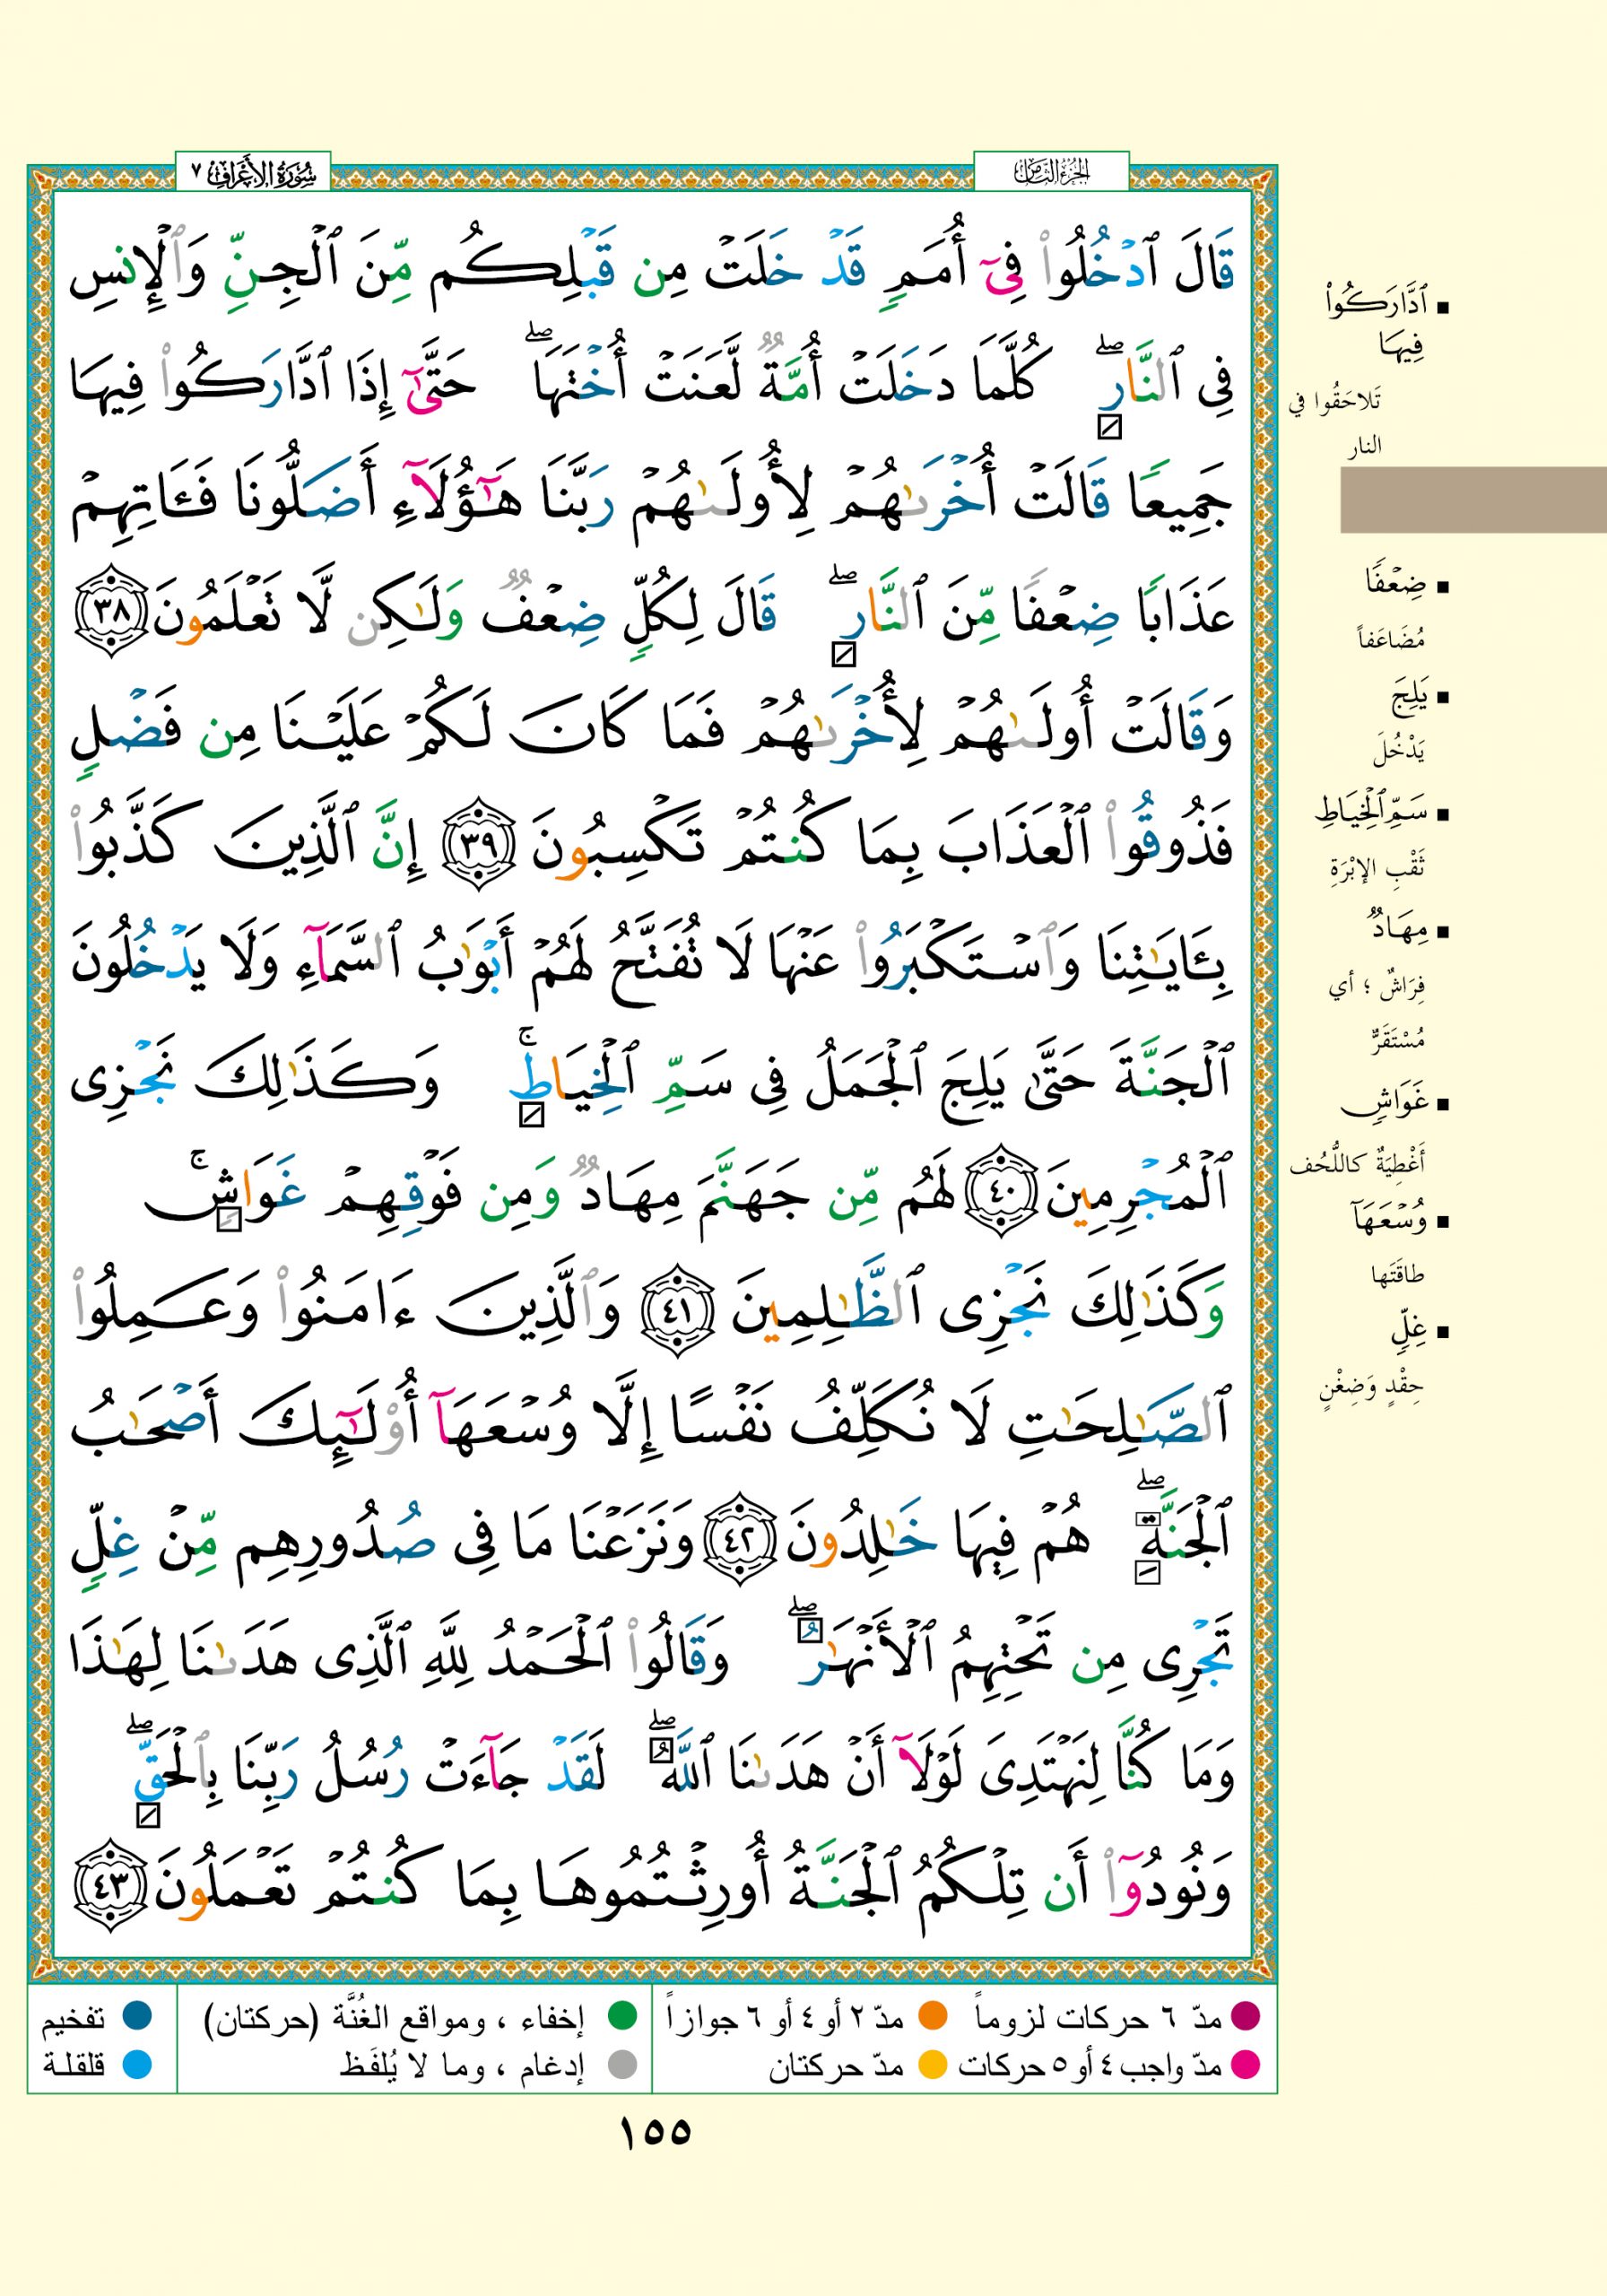 الجزء الثامن
سورة الأعراف ٧
قَالَ ٱدۡخُلُواْ فِىٓ أُمَمٖ قَدۡ خَلَتۡ مِن قَبۡلِكُم مِّنَ ٱلۡجِنِّ وَٱلۡإِنسِ
فِى ٱلنَّارِۖ كُلَّمَا دَخَلَتۡ أُمَّةٞ لَّعَنَتۡ أُخۡتَهَاۖ حَتَّىٰٓ إِذَا ٱدَّارَكُواْ فِيهَا
جَمِيعٗا قَالَتۡ أُخۡرَىٰهُمۡ لِأُولَىٰهُمۡ رَبَّنَا هَٰٓؤُلَآءِ أَضَلُّونَا فَـَٔاتِهِمۡ
عَذَابٗا ضِعۡفٗا مِّنَ ٱلنَّارِۖ قَالَ لِكُلّٖ ضِعۡفٞ وَلَٰكِن لَّا تَعۡلَمُونَ ٣٨
وَقَالَتۡ أُولَىٰهُمۡ لِأُخۡرَىٰهُمۡ فَمَا كَانَ لَكُمۡ عَلَيۡنَا مِن فَضۡلٖ
فَذُوقُواْ ٱلۡعَذَابَ بِمَا كُنتُمۡ تَكۡسِبُونَ ٣٩ إِنَّ ٱلَّذِينَ كَذَّبُواْ
بِـَٔايَٰتِنَا وَٱسۡتَكۡبَرُواْ عَنۡهَا لَا تُفَتَّحُ لَهُمۡ أَبۡوَٰبُ ٱلسَّمَآءِ وَلَا يَدۡخُلُونَ
ٱلۡجَنَّةَ حَتَّىٰ يَلِجَ ٱلۡجَمَلُ فِى سَمِّ ٱلۡخِيَاطِۚ وَكَذَٰلِكَ نَجۡزِى
ٱلۡمُجۡرِمِينَ ٤٠ لَهُم مِّن جَهَنَّمَ مِهَادٞ وَمِن فَوۡقِهِمۡ غَوَاشٖۚ
وَكَذَٰلِكَ نَجۡزِى ٱلظَّٰلِمِينَ ٤١ وَٱلَّذِينَ ءَامَنُواْ وَعَمِلُواْ
ٱلصَّٰلِحَٰتِ لَا نُكَلِّفُ نَفۡسًا إِلَّا وُسۡعَهَآ أُوْلَٰٓئِكَ أَصۡحَٰبُ
ٱلۡجَنَّةِۖ هُمۡ فِيهَا خَٰلِدُونَ ٤٢ وَنَزَعۡنَا مَا فِى صُدُورِهِم مِّنۡ غِلّٖ
تَجۡرِى مِن تَحۡتِهِمُ ٱلۡأَنۡهَٰرُۖ وَقَالُواْ ٱلۡحَمۡدُ لِلَّهِ ٱلَّذِى هَدَىٰنَا لِهَٰذَا
وَمَا كُنَّا لِنَهۡتَدِىَ لَوۡلَآ أَنۡ هَدَىٰنَا ٱللَّهُۖ لَقَدۡ جَآءَتۡ رُسُلُ رَبِّنَا بِٱلۡحَقِّۖ
وَنُودُوٓاْ أَن تِلۡكُمُ ٱلۡجَنَّةُ أُورِثۡتُمُوهَا بِمَا كُنتُمۡ تَعۡمَلُونَ ٤٣
▪ ٱدَّارَكُواْ
فِيهَا
تَلاحَقُوا في
النار
▪ ضِعۡفٗا
مُضَاعَفاً
▪ يَلِجَ
يَدْخُلَ
▪ سَمِّ ٱلۡخِيَاطِ
ثَقْبِ الإبْرَةِ
▪ مِهَادٞ
فِرَاشٌ ؛ أي
مُسْتَقَرٌّ
▪ غَوَاشٖ
أَغْطِيَةٌ كاللُّحُف
▪ وُسۡعَهَآ
طاقَتَها
▪ غِلّٖ
حِقْدٍ وَضِغْنٍ
مدّ ٦ حركات لزوماً مدّ ٢ أو ٤ أو ٦ جوازاً
مدّ واجب ٤ أو ٥ حركات مدّ حركتان
إخفاء ، ومواقع الغُنَّة (حركتان)
إدغام ، وما لا يُلفَظ
تفخيم
قلقلة
١٥٥